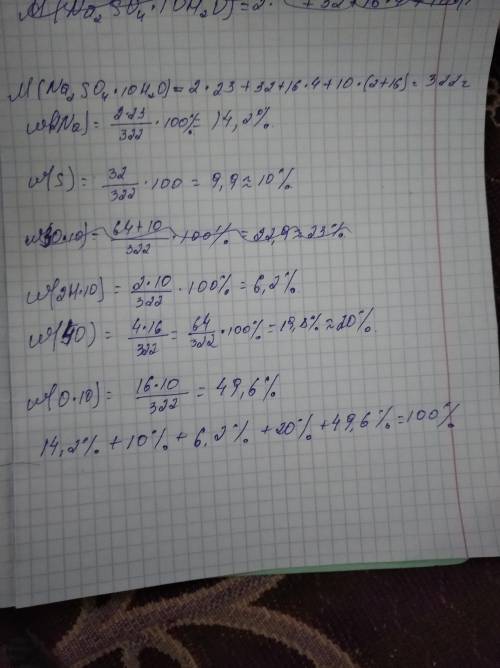 M(Na₂SO₄·10H₂O)=2·
+32+16·
M(Na₂SO₄·10H₂O)=2·23+32+16·4+10·(2+16)=322г
w(Na)=2·23/322·100%=14,2%.
w(S)=32/322·100=9,9≈10%
=64+10/322·100%=22,9≈23%
w(2H·10)=2·10/322·100%=6,2%
w(4O)=4·16/322=64/322·100%=19,8%≈20%.
w(O·10)=16·10/322=49,6%
14,2%+10%+6,2%+20%+49,6%=100%